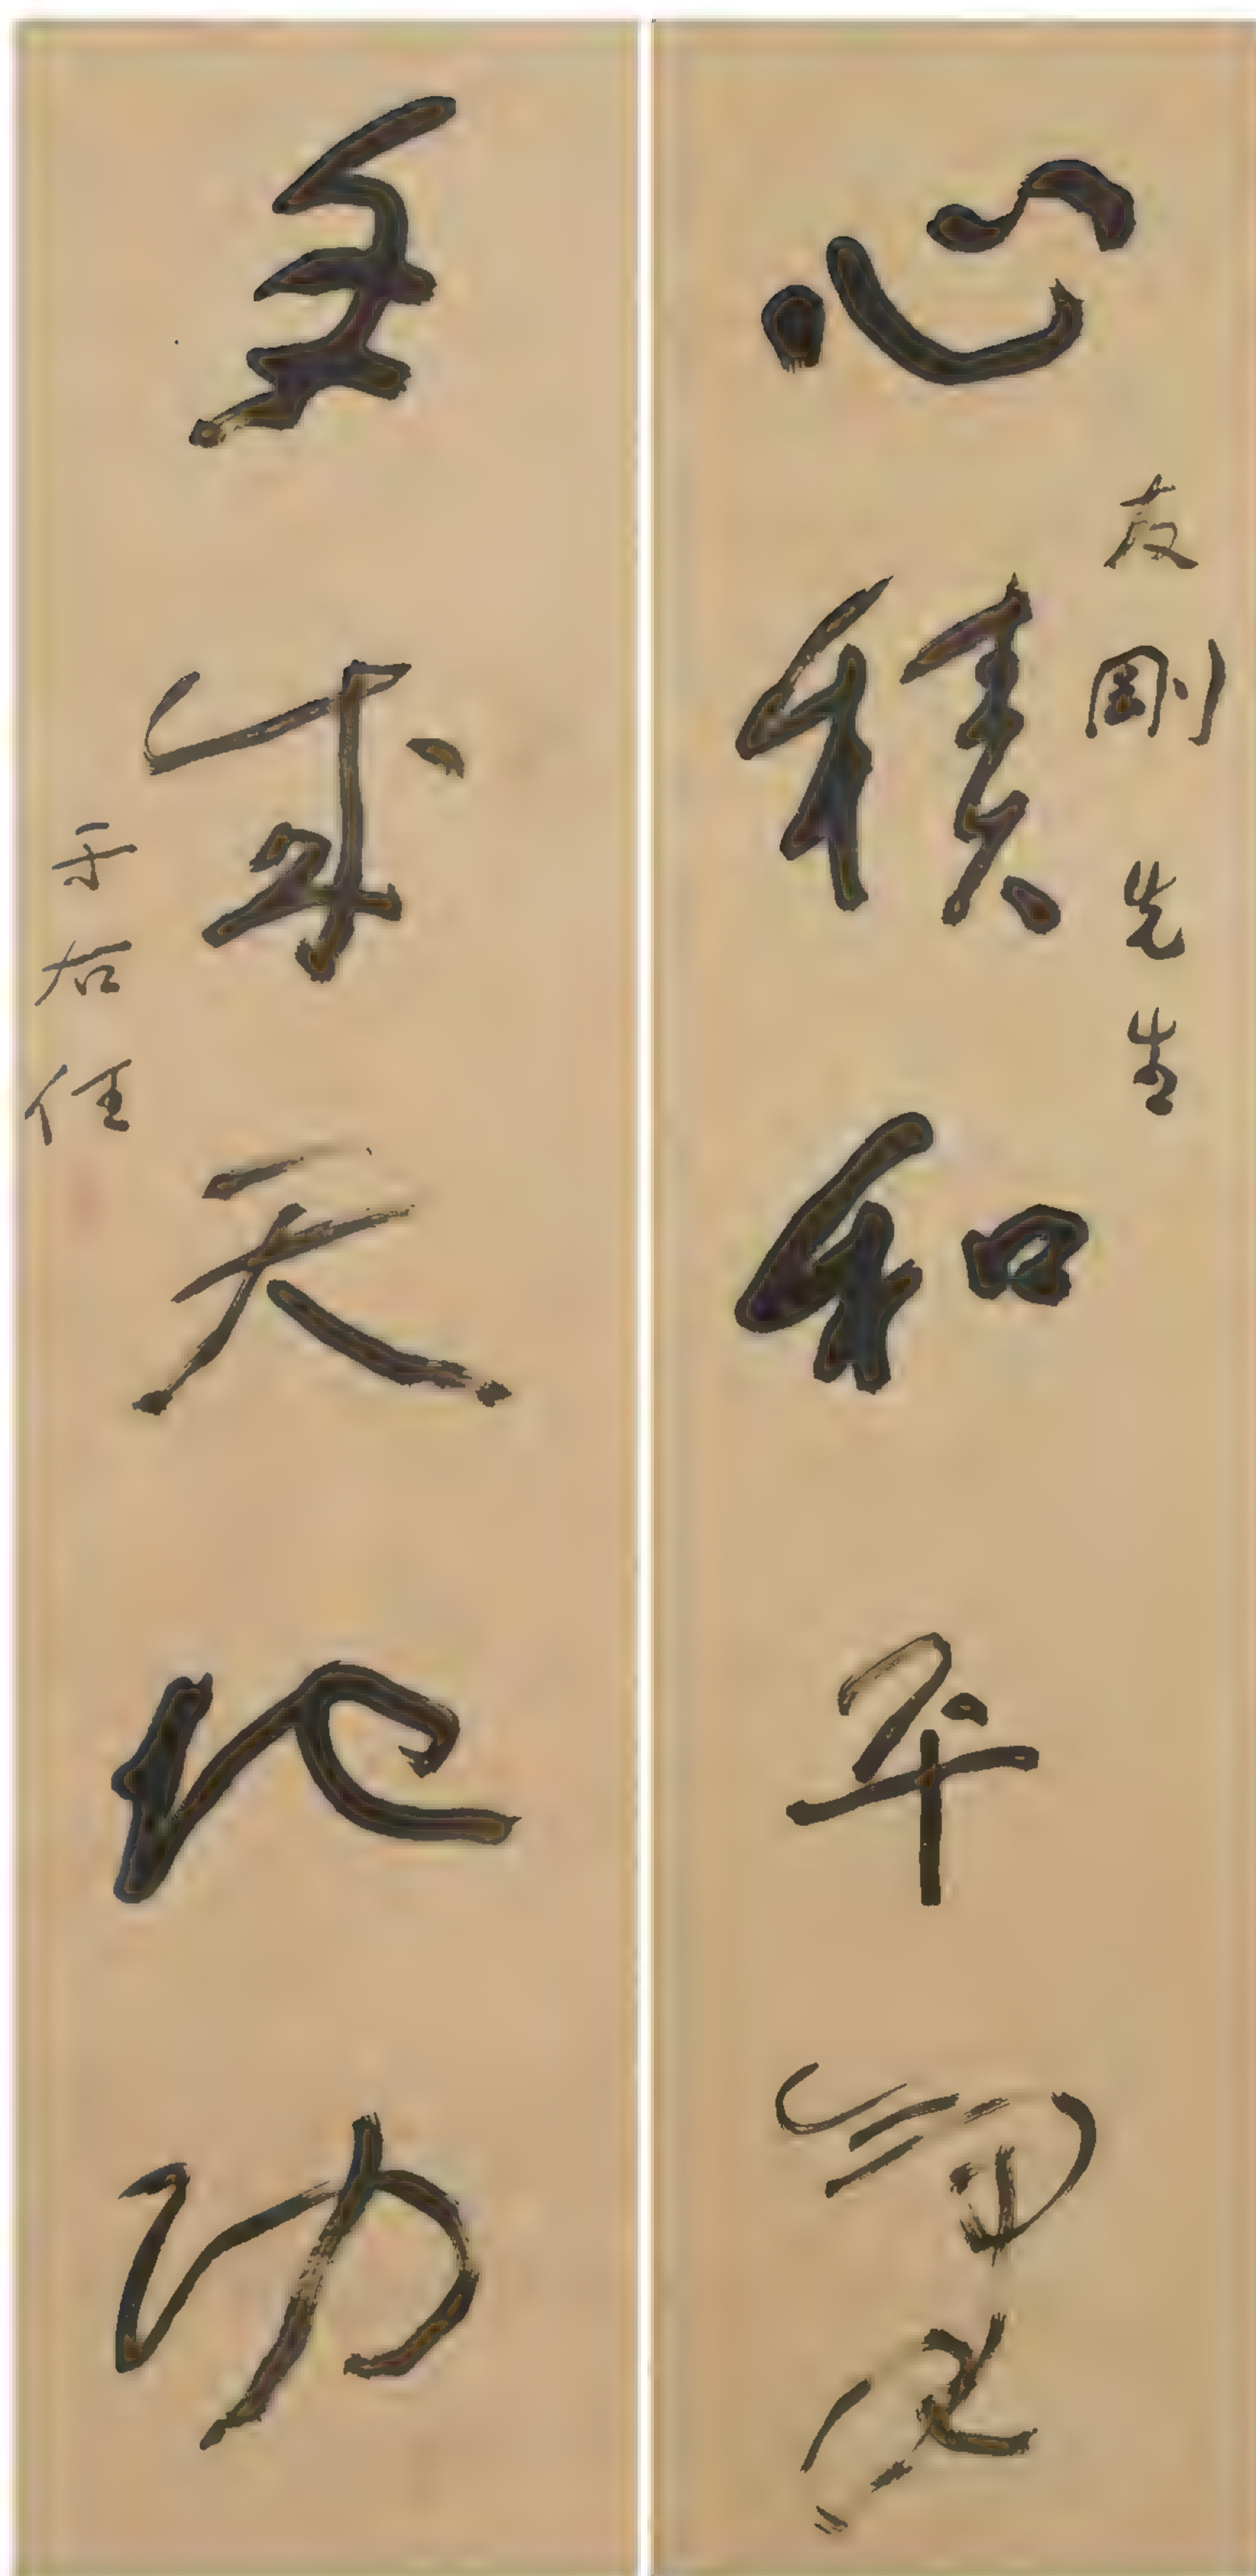 心積和平氣
友剛先生
手成天地功
于右任